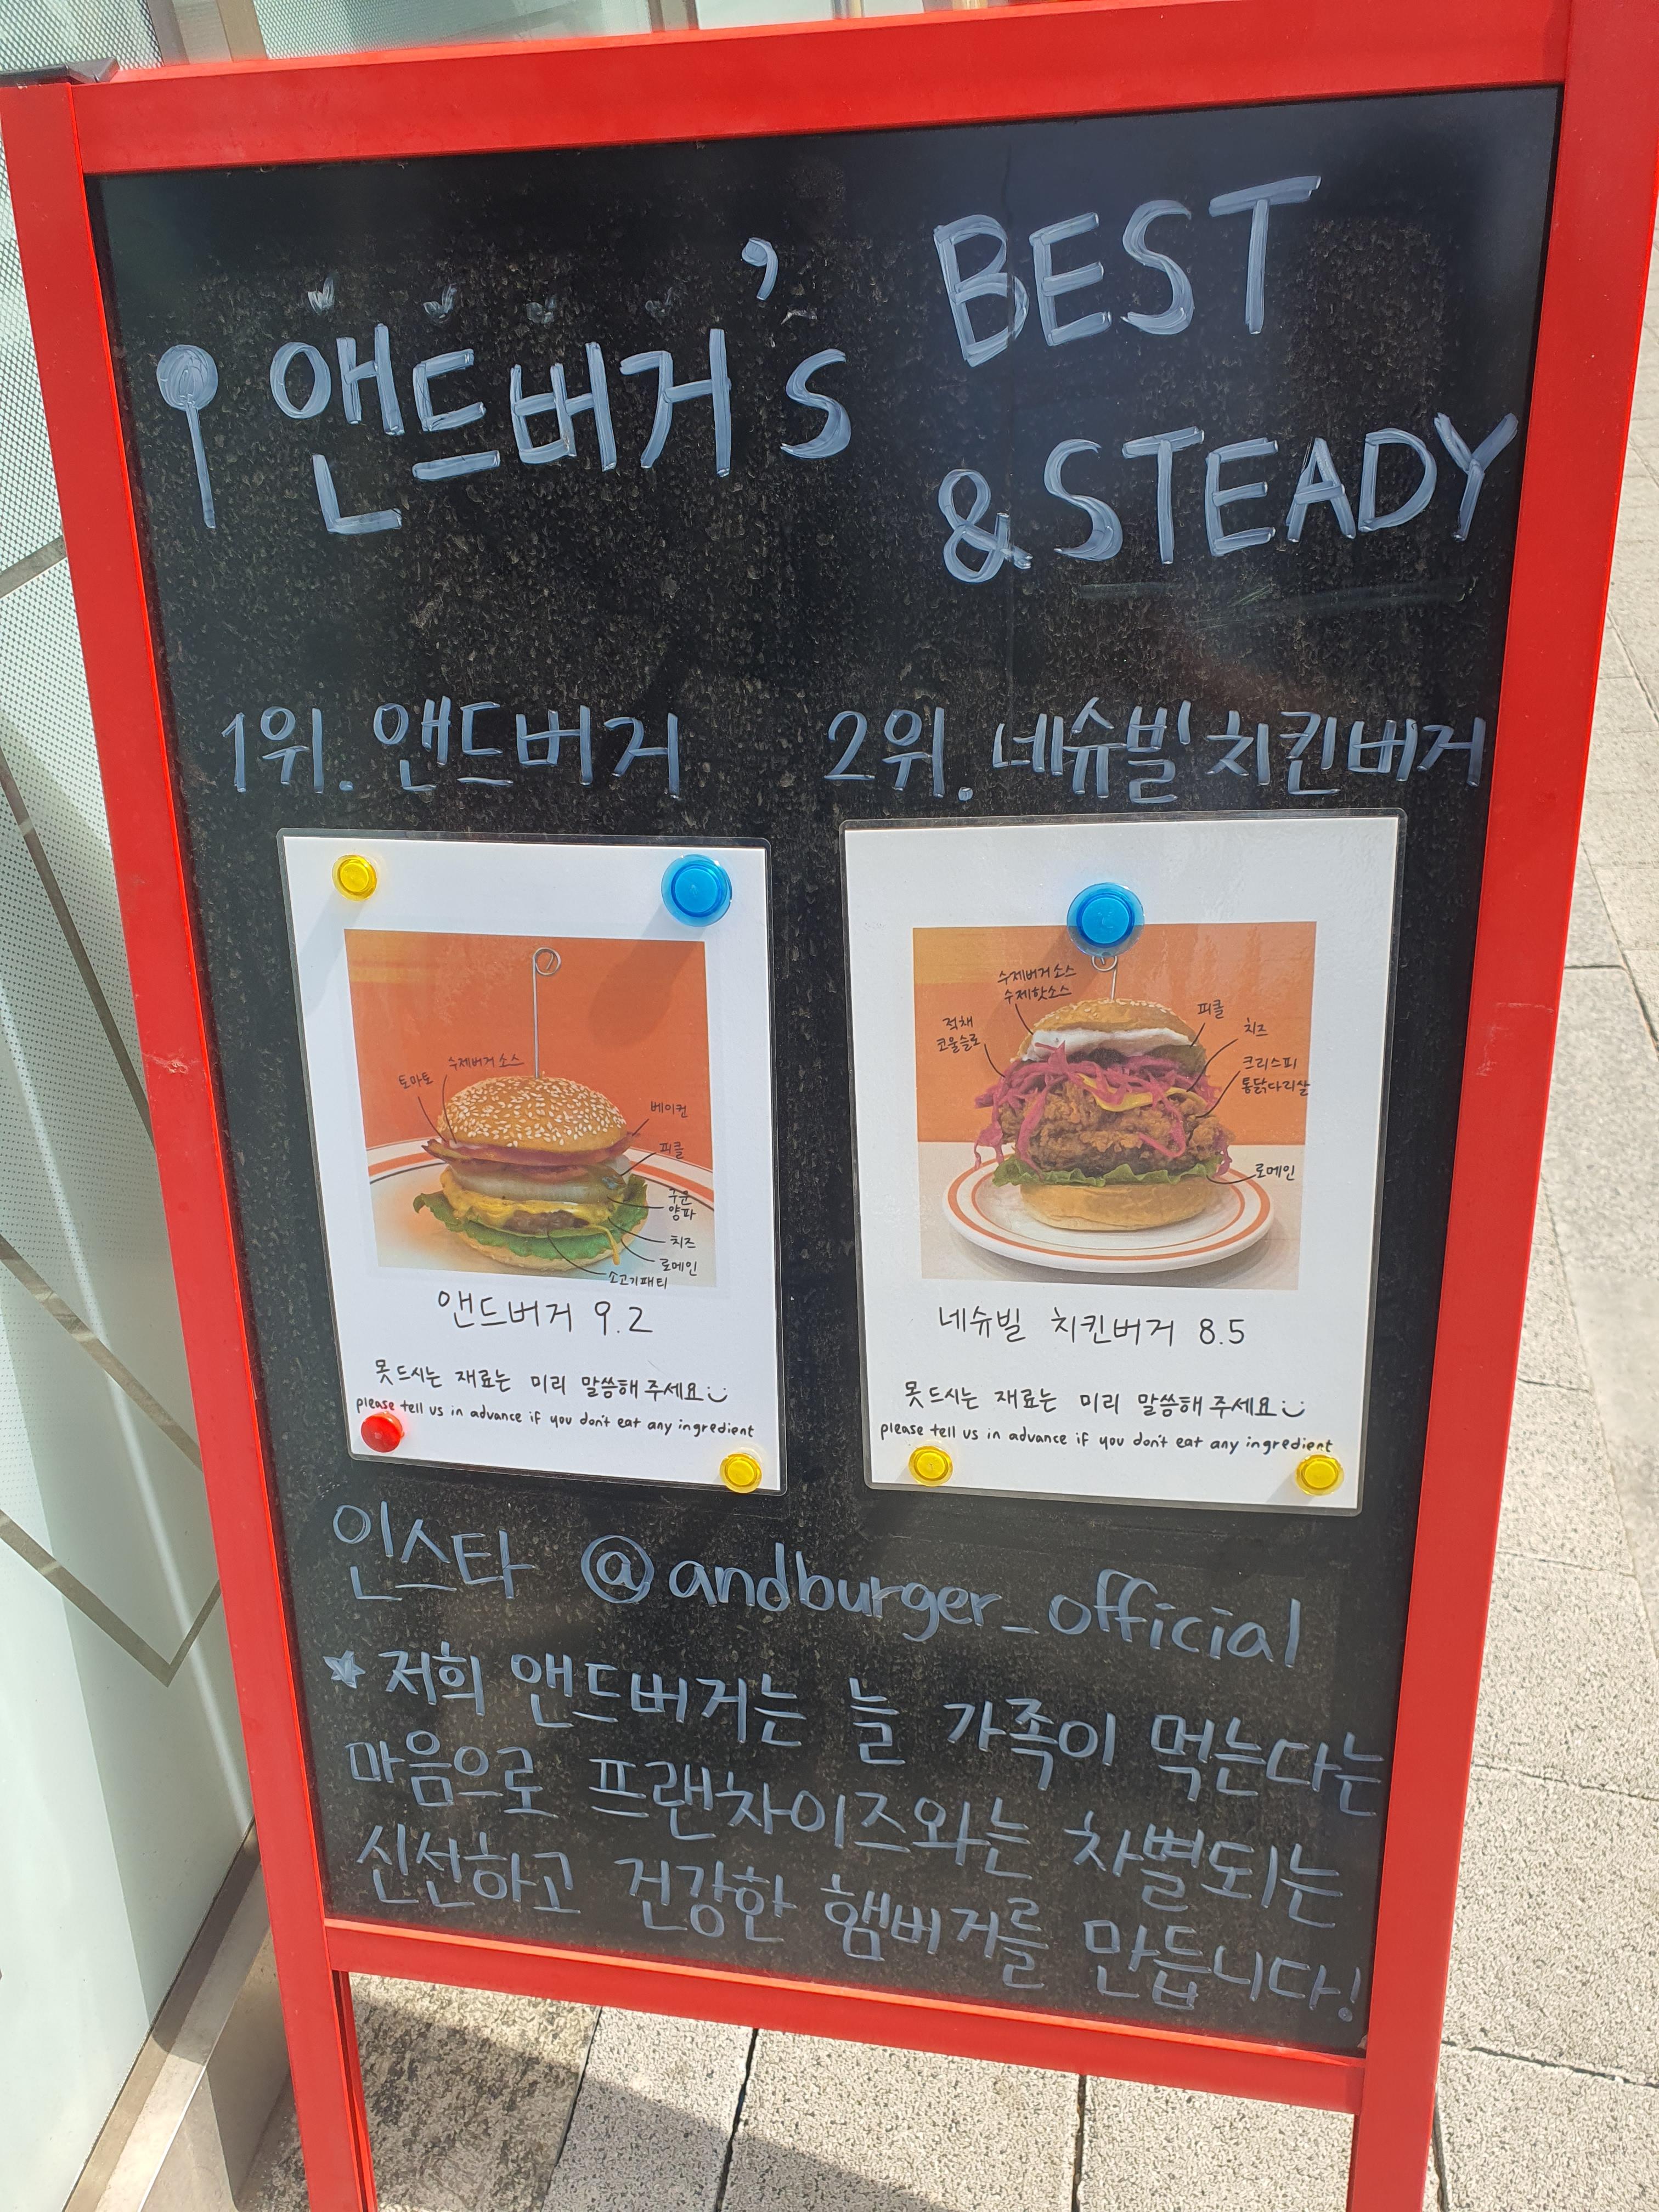 앤드버거's BEST
& STEADY
1위. 앤드버거
2위. 네슈빌 치킨버거
토마토
수제버거 소스
베이컨
피클
구운
양파
치즈
로메인
소고기패티
앤드버거 9.2
못드시는 재료는 미리 말씀해주세요
please tell us in advance if you don't eat any ingredient
수제버거소스
수제핫소스
적채
코울슬로
피클
치즈
크리스피
통닭다리살
로메인
네슈빌 치킨버거 8.5
못드시는 재료는 미리 말씀해주세요
please tell us in advance if you don't eat any ingredient
인스타 @andburger_official
★저희 앤드버거는 늘 가족이 먹는다는
마음으로 프랜차이즈와는 차별되는
신선하고 건강한 햄버거를 만듭니다!